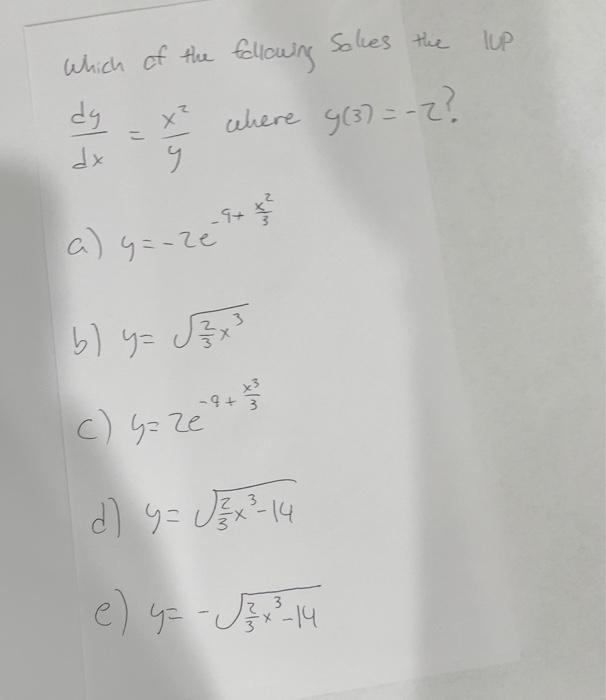 Which of the following Solves the IVP
dy/dx = x²/y where y(3) = -2?
a) y = -2e^(-9 + x²/3)
b) y = √(2/3 x³)
c) y = 2e^(-9 + x³/3)
d) y = √(2/3 x³ - 14)
e) y = -√(2/3 x³ - 14)